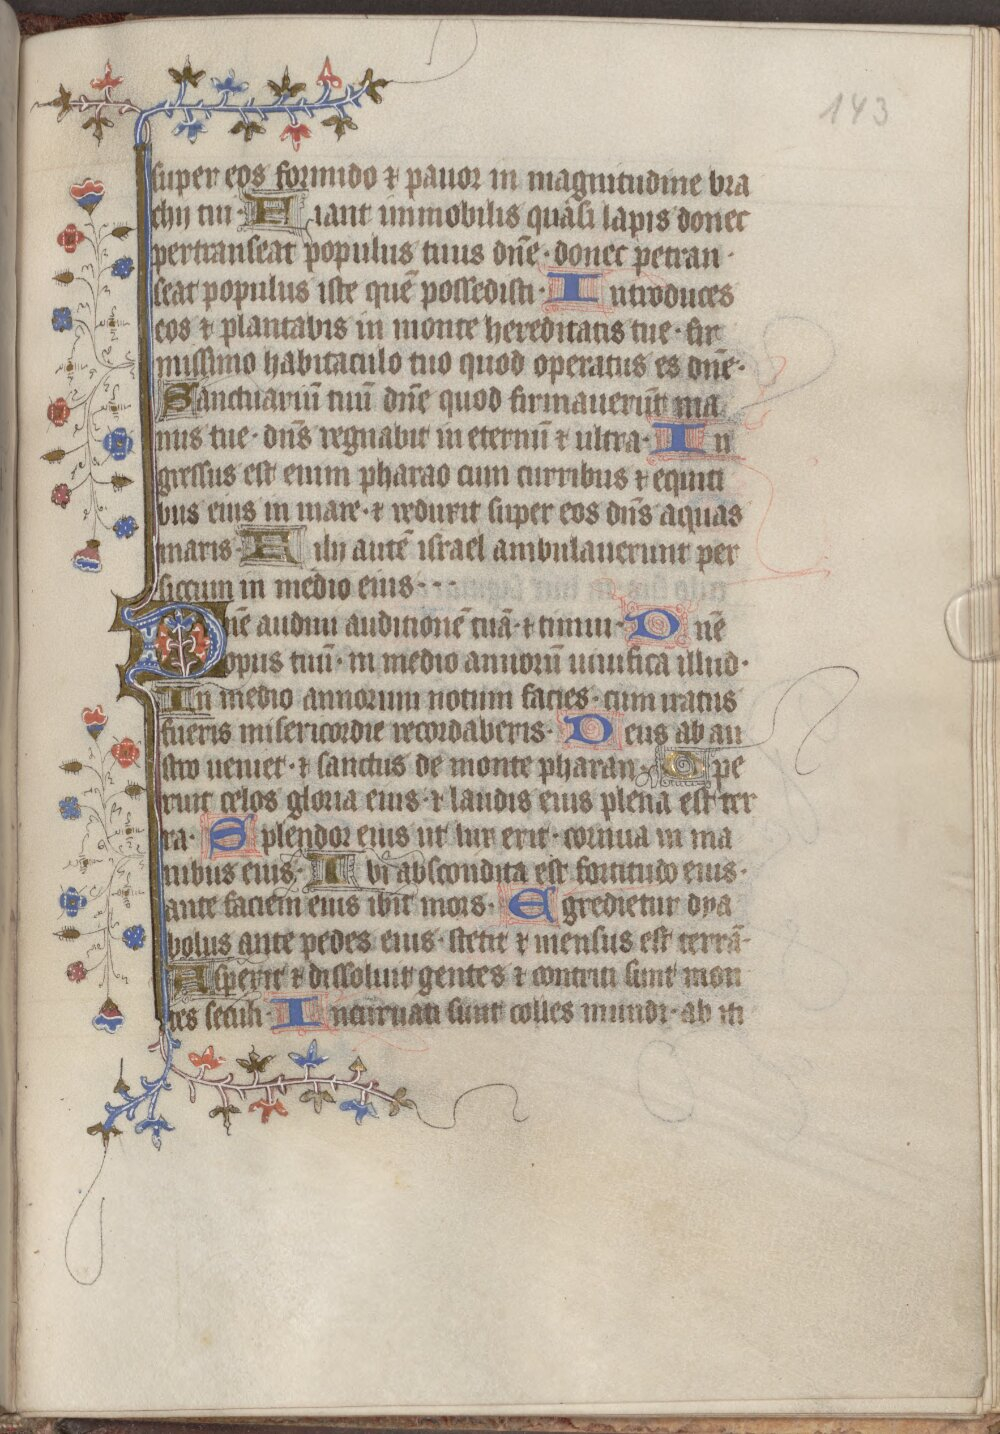 143
super eos formido ⁊ pavor in magnitudine bra
chij tui · Fiant immobilis quasi lapis donec
pertranseat populus tuus dñe · donec petran ·
seat populus iste quē possedisti · Introduces
eos ⁊ plantabis in monte hereditatis tue · fir
missimo habitaculo tuo quod operatus es dñe ·
Sanctuariū tuū dñe quod firmaverūt ma
nus tue · dñs regnabit in eternū ⁊ ultra · In
gressus est enim pharao cum curribus ⁊ equiti
bus eius in mare · ⁊ reduxit super eos dñs aquas
maris · Filij autē israel ambulaverunt per
siccum in medio eius · · ·
Dñe audivi auditionē tuā · ⁊ timui · Dñe
opus tuū · in medio annorū vivifica illud ·
In medio annorum notum facies · cum iratus
fueris misericordie recordaberis · Deus ab au
stro veniet · ⁊ sanctus de monte pharan · Ope
ruit celos gloria eius · ⁊ laudis eius plena est ter
ra · Splendor eius ut lux erit · cornua in ma
nibus eius · Ibi abscondita est fortitudo eius ·
ante faciem eius ibit mors · Egredietur dya
bolus ante pedes eius · stetit ⁊ mensus est terrā ·
Asperit ⁊ dissoluit gentes ⁊ contriti sunt mon
tes seculi · Incurvati sunt colles mundi · ab iti